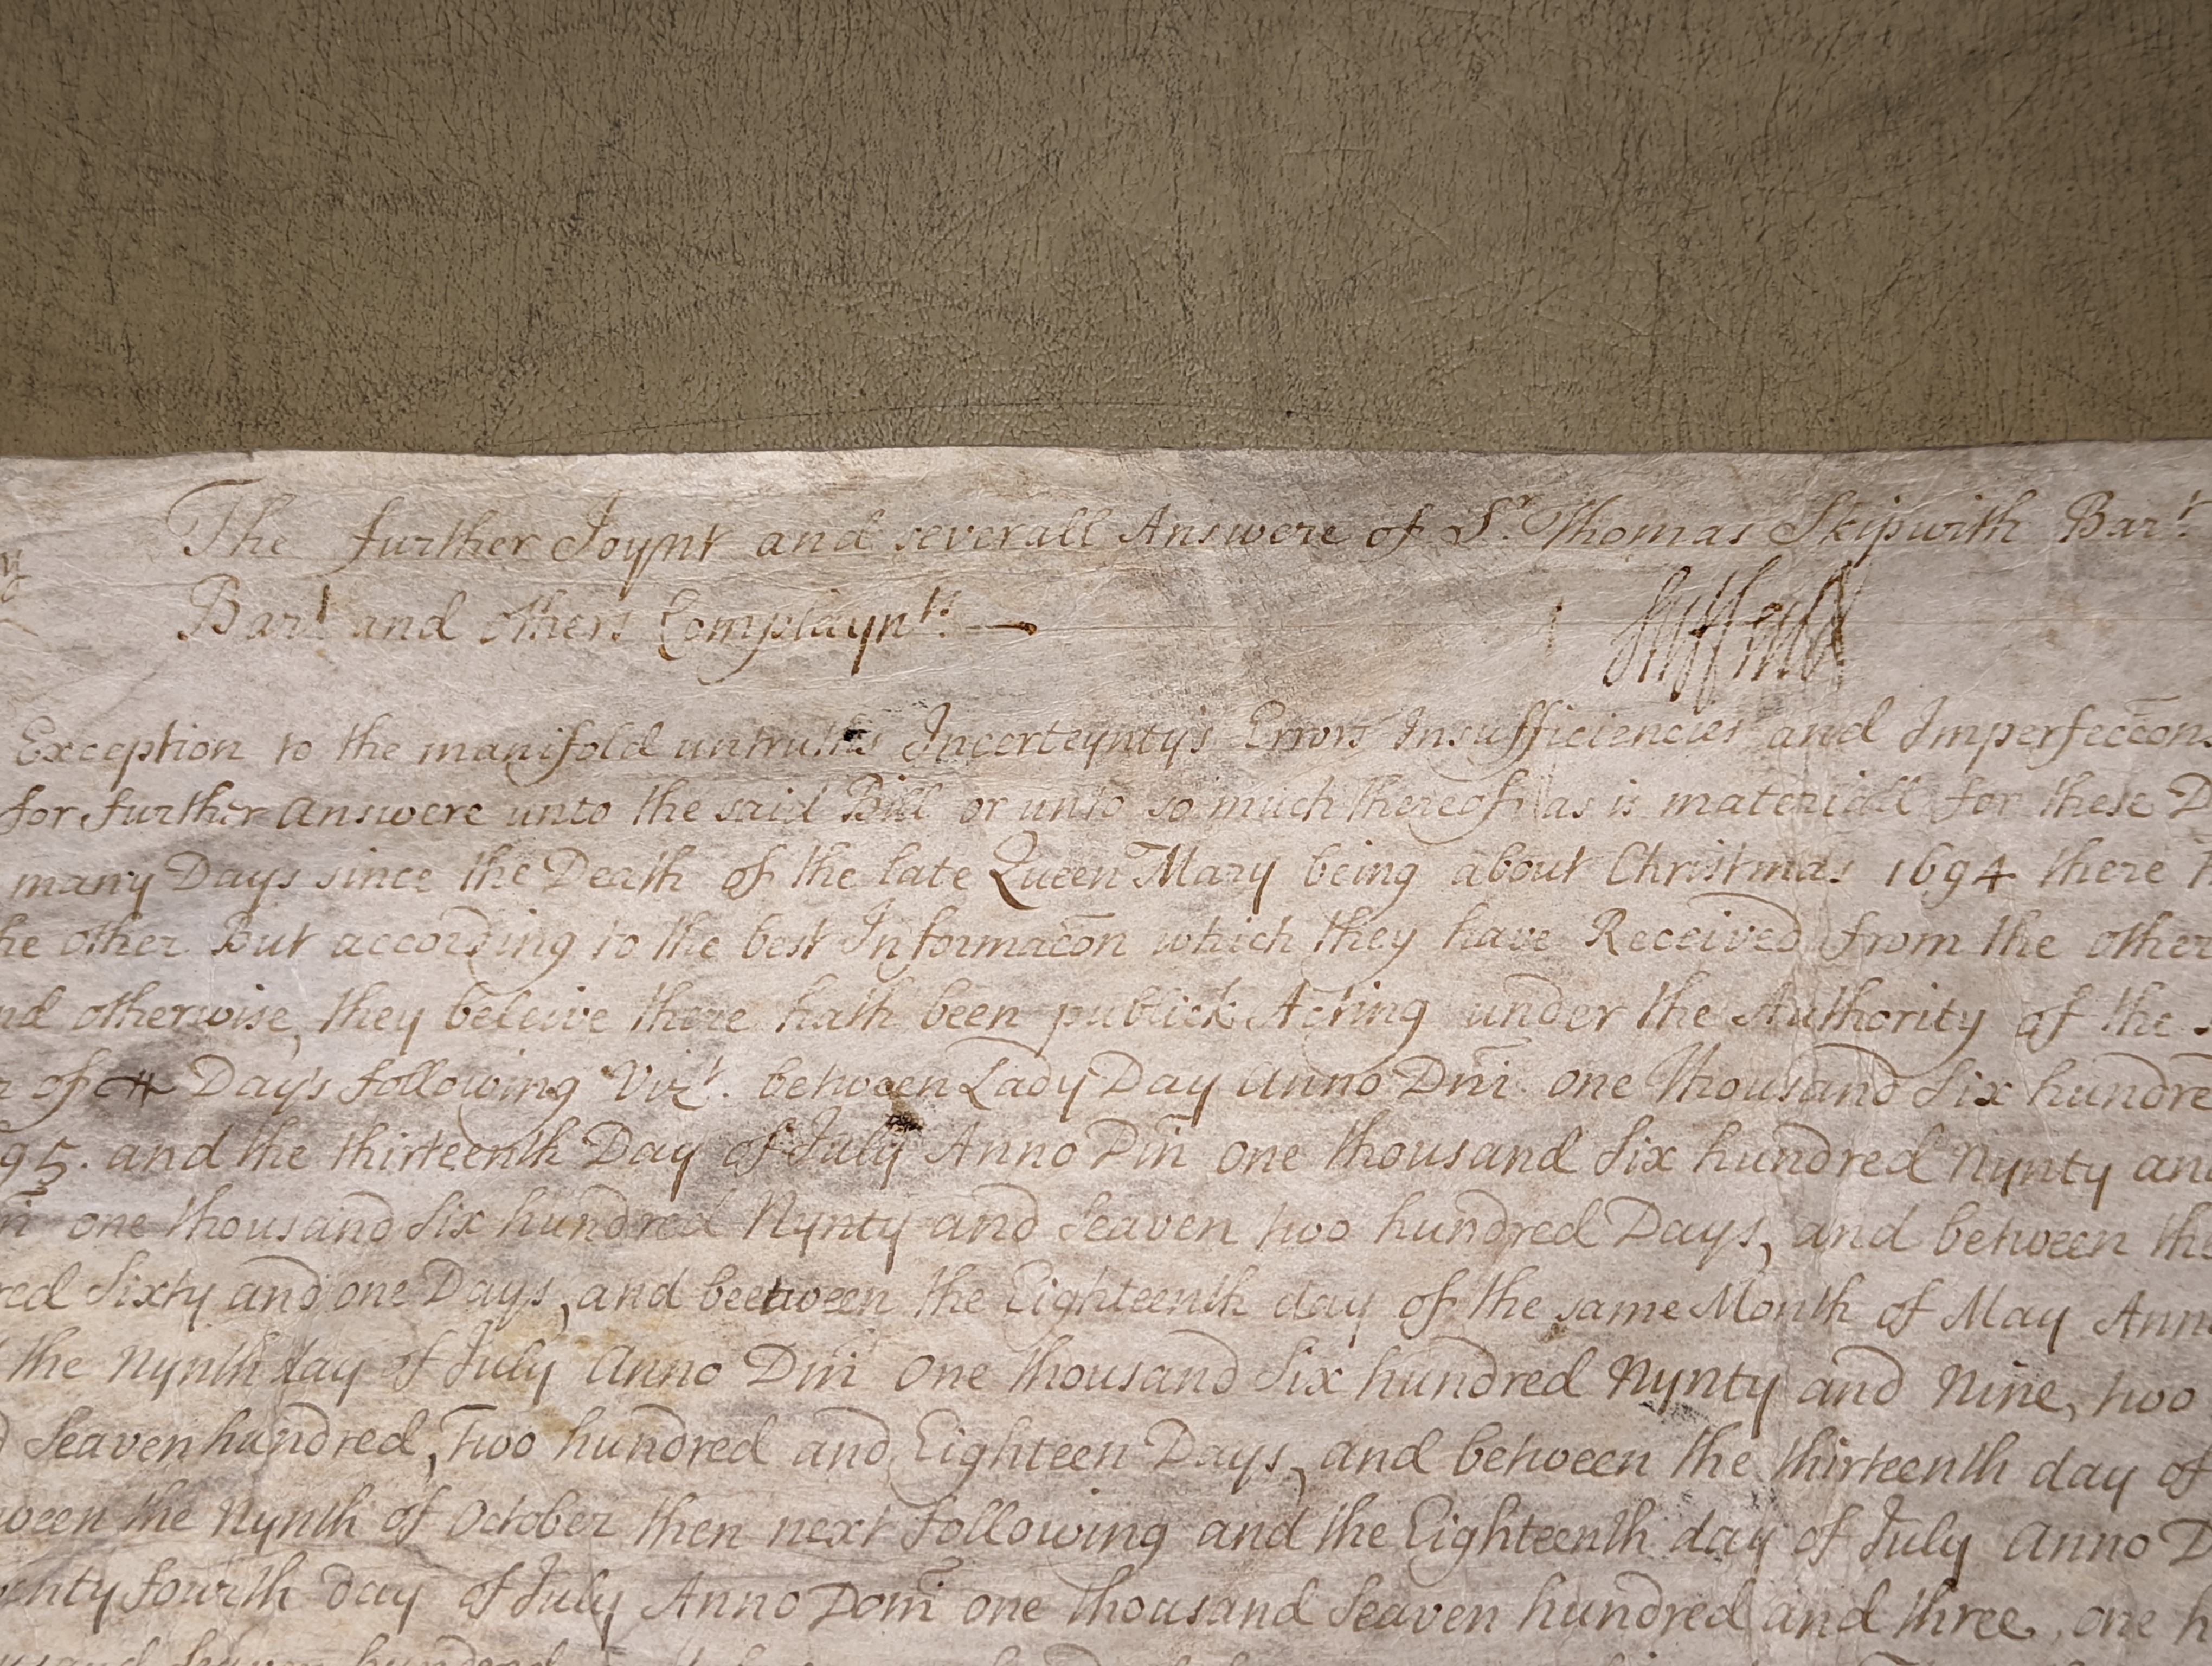 The further Joynt and severall Answere of Sr. Thomas Skipwith Bart.
Bart. and others Complaynts.
Exception to the manifold untruths Incerteynty's Errors Insufficiencies and Imperfeccons
for further answere unto the said Bill or unto so much thereof as is materiall for these D
many Days since the Death of the late Queen Mary being about Christmas 1694 there
he other But according to the best Informacon which they have Received from the other
nd otherwise, they beleive there hath been publick Acting under the Authority of the
of Days following Vizt. between Lady Day anno Dni. one thousand six hundre
95. and the thirteenth Day of July Anno Dni one thousand six hundred Nynty an
ni one thousand six hundred Nynty and Seaven two hundred Days, and between th
red Sixty and one Days, and beetween the Eighteenth day of the same Month of May Ann
the Nynth day of July anno Dni One thousand Six hundred Nynty and Nine, two
d Seaven hundred, Two hundred and Eighteen Days, and between the thirteenth day of
ween the Nynth of October then next following and the Eighteenth day of July anno D
enty fourth day of July Anno Domi one thousand Seaven hundred and three, one h